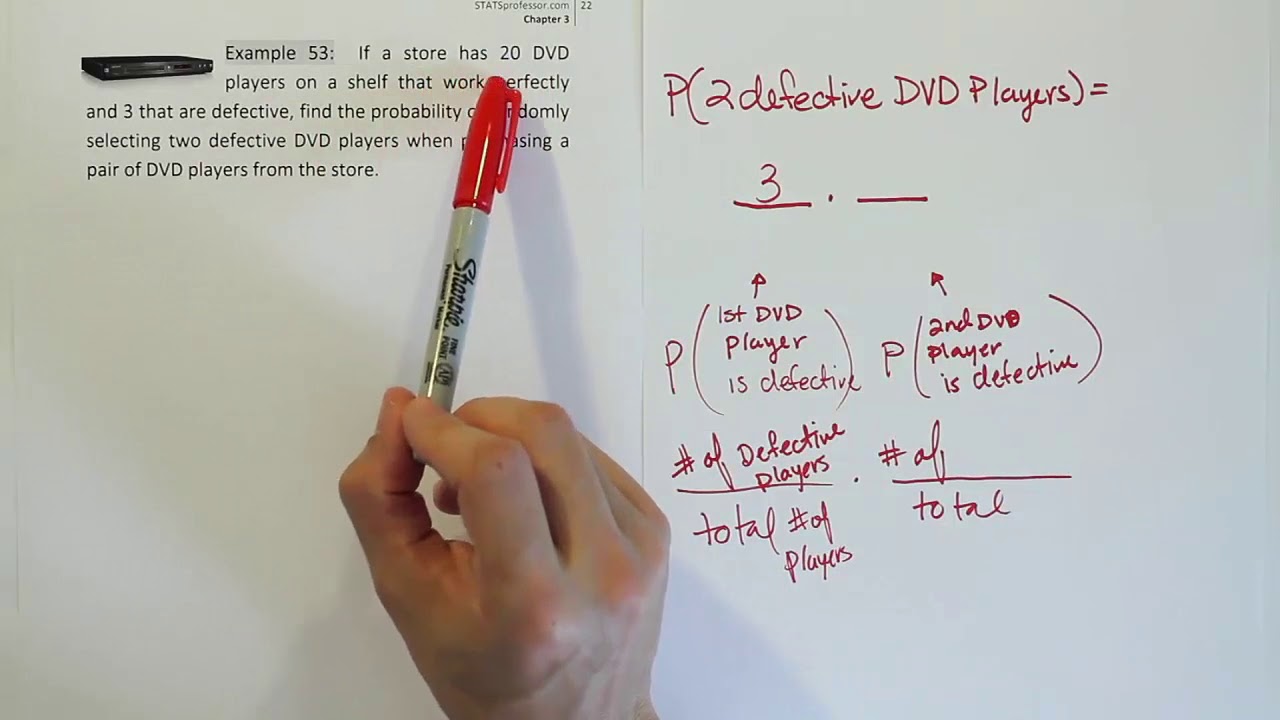 STATSprofessor.com
Chapter 3
22
Example 53: If a store has 20 DVD
players on a shelf that work perfectly
and 3 that are defective, find the probability randomly
selecting two defective DVD players when purchasing a
pair of DVD players from the store.
P(2 defective DVD Players) =
3 .
P( 1st DVD player is defective ) P( 2nd DVD player is defective )
# of Defective players . # of
total # of players total
Sharpie
FINE POINT
AP